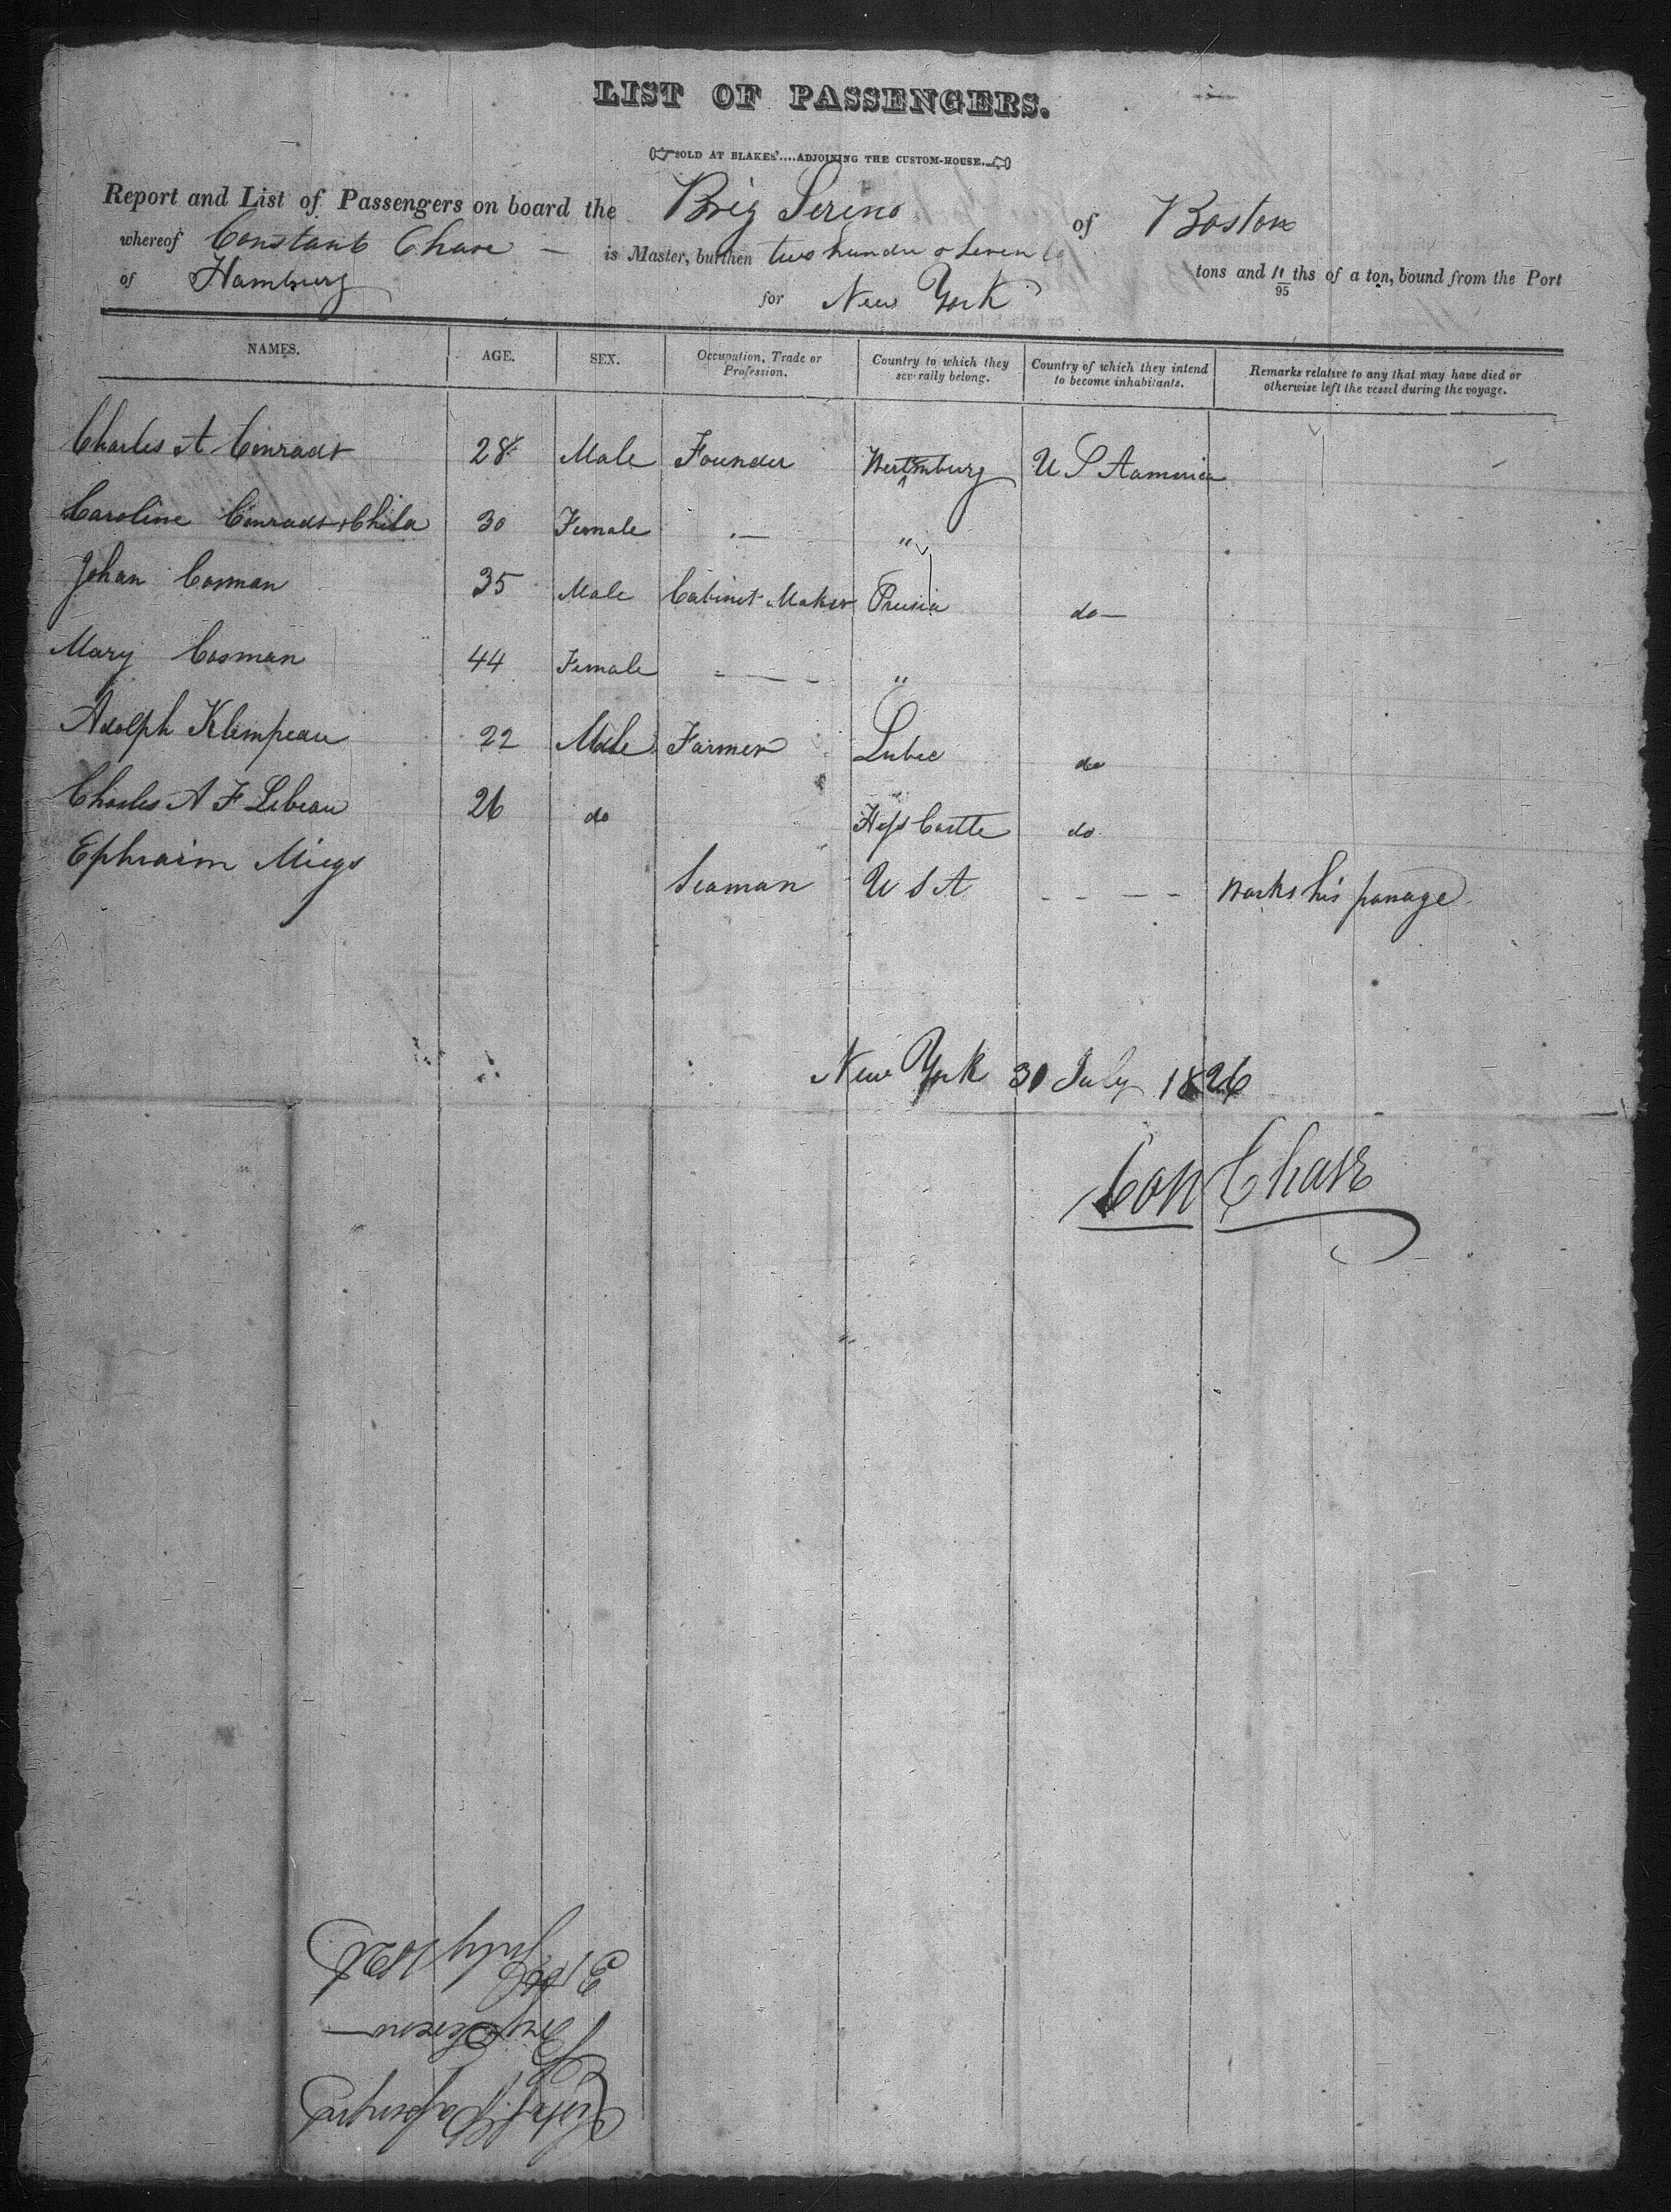 LIST OF PASSENGERS.
SOLD AT BLAKES'....ADJOINING THE CUSTOM-HOUSE.
Report and List of Passengers on board the Brig Sereno of Boston
whereof Constant Chase — is Master, burthen two hundre & Seven tons and 11/95 ths of a ton, bound from the Port
of Hamburg for New York
NAMES. AGE. SEX. Occupation, Trade or Profession. Country to which they severally belong. Country of which they intend to become inhabitants. Remarks relative to any that may have died or otherwise left the vessel during the voyage.
Charles A Conradt 28 Male Founder Wertmburg U S Aamerica
Caroline Conradt & Child 30 Female — "
Johan Cosman 35 Male Cabinet Maker Prusia do —
Mary Cosman 44 Female - — - "
Adolph Klempeau 22 Male Farmer Lubec do
Charles A F Lebeau 26 do Hess Castle do
Ephraim Miegs Seaman U S A - - - - Works his passage
New York 31 July 1826
Con Chase
List of Passengers
Brig Sereno —
31 July 1826